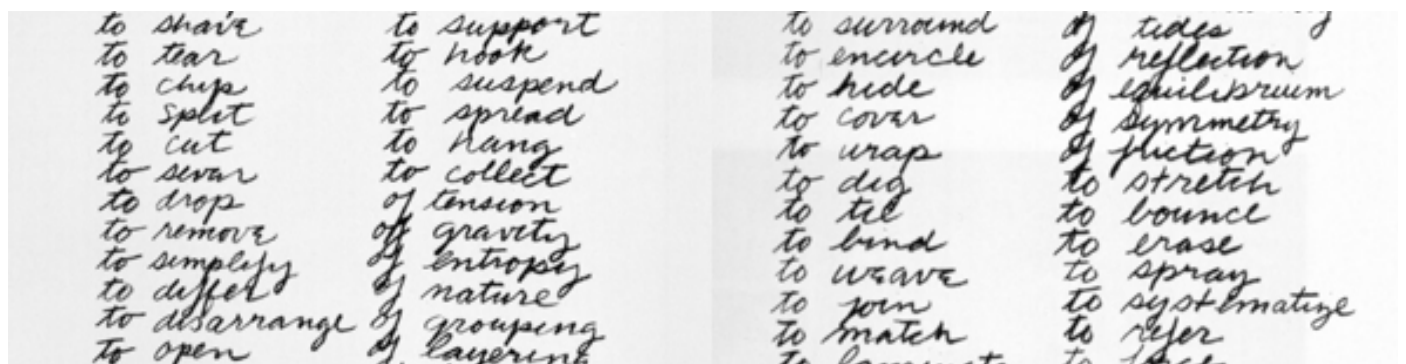 to shave
to tear
to chip
to split
to cut
to sever
to drop
to remove
to simplify
to differ
to disarrange
to open
to support
to hook
to suspend
to spread
to hang
to collect
of tension
of gravity
of entropy
of nature
of grouping
of layering
to surround
to encircle
to hide
to cover
to wrap
to dig
to tie
to bind
to weave
to join
to match
to laminate
of tides
of reflection
of equilibrium
of symmetry
of friction
to stretch
to bounce
to erase
to spray
to systematize
to refer
to force